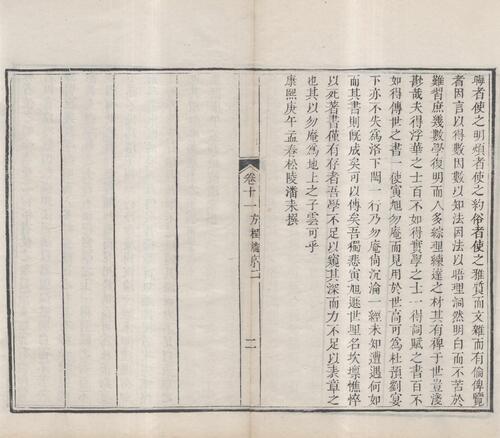 晦者使之明煩者使之約俗者使之雅質而文雜而有倫俾覽
者因言以得數因數以知法因法以晤理洞然明白而不苦於
難習庶幾數學復明而人多綜理練達之材其有裨于世豈淺
尠哉夫得浮華之士百不如得實學之士一得詞賦之書百不
如得傳世之書一使寅旭勿庵而見用於世高可爲杜預劉宴
下亦不失爲洛下閎一行乃勿庵尙沉淪一經未知遭遇何如
而其書則旣成矣可以傳矣吾獨悲寅旭遯世埋名坎壈憔悴
以死著書僅有存者吾學不足以窺其深而力不足以表章之
也其以勿庵爲地上之子雲可乎
康熙庚午孟春松陵潘耒撰
卷十一 方程論序二 二